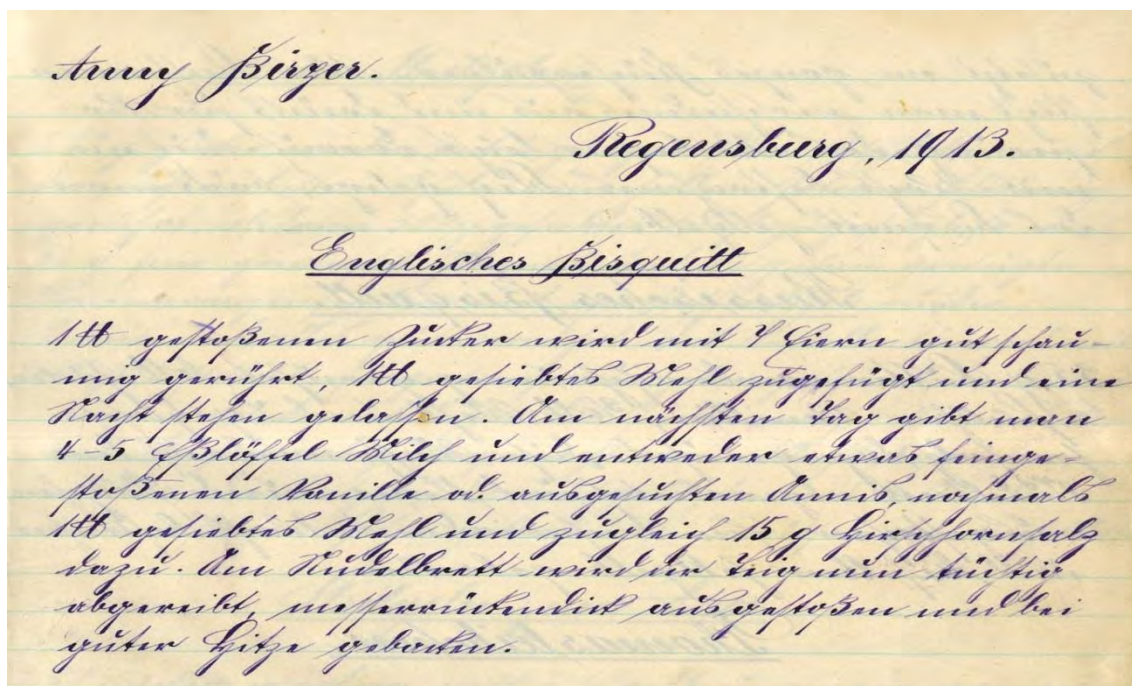 Anny Birzer.
Regensburg, 1913.
Englisches Bisquitt
1 ℔ gestoßenen Zucker wird mit 7 Eiern gut schau-
mig gerührt, 1 ℔ gesiebtes Mehl zugefügt und eine
Nacht stehen gelassen. Am nächsten Tag gibt man
4-5 Eßlöffel Milch und entweder etwas feinge-
stoßenen Vanille od. ausgesuchten Annis, nochmals
1 ℔ gesiebtes Mehl und zugleich 15 g Hirschhornsalz
dazu. Am Nudelbrett wird der Teig nun tüchtig
abgereibt, messerrückendick ausgestoßen und bei
guter Hitze gebacken.